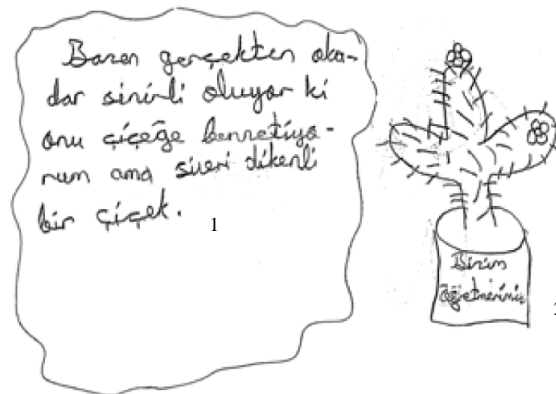 Bazen gerçekten oka-
dar sinirli oluyor ki
onu çiçeğe benzetiyo-
rum ama sivri dikenli
bir çiçek.
1
Bizim
öğretmenimiz
2